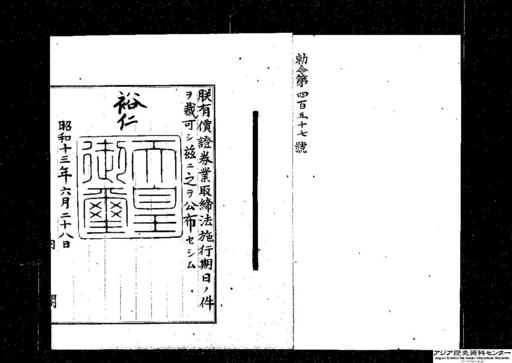 勅令第四百五十七號
朕有價證券業取締法施行期日ノ件
ヲ裁可シ茲ニ之ヲ公布セシム
裕仁
天皇御璽
昭和十三年六月二十八日
内閣
アジア歴史資料センター
Japan Center for Asian Historical Records